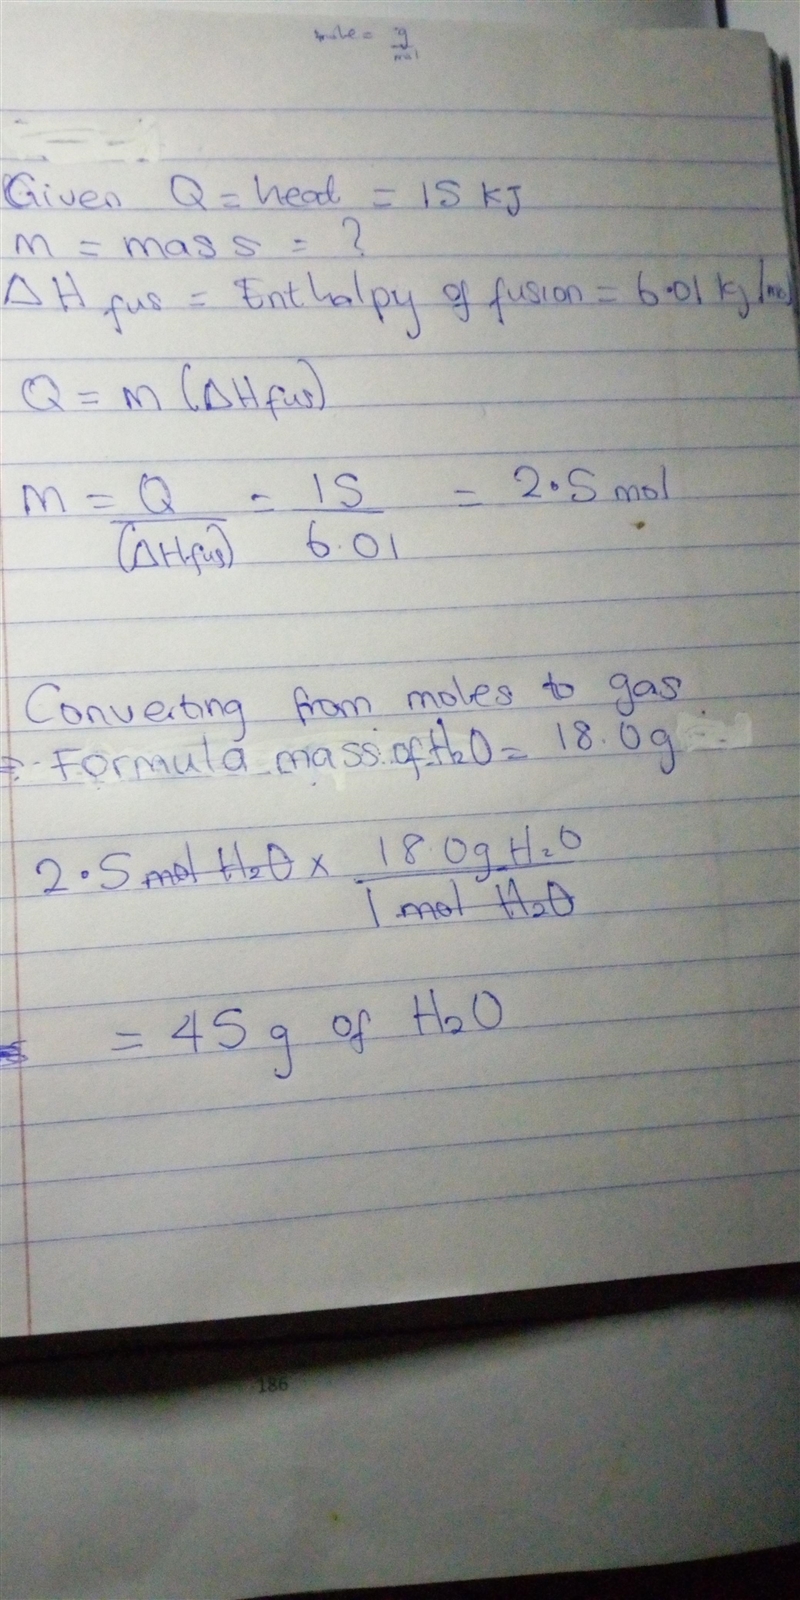 mole = g
mol
Given Q = heat = 15 KJ
m = mass = ?
ΔH fus = Enthalpy of fusion = 6.01 kj/mol
Q = m (ΔHfus)
m = Q = 15 = 2.5 mol
(ΔHfus) 6.01
Converting from moles to gas.
Formula mass of H₂O = 18.0g
2.5 mol H₂O x 18.0g H₂O
1 mol H₂O
= 45 g of H₂O
186